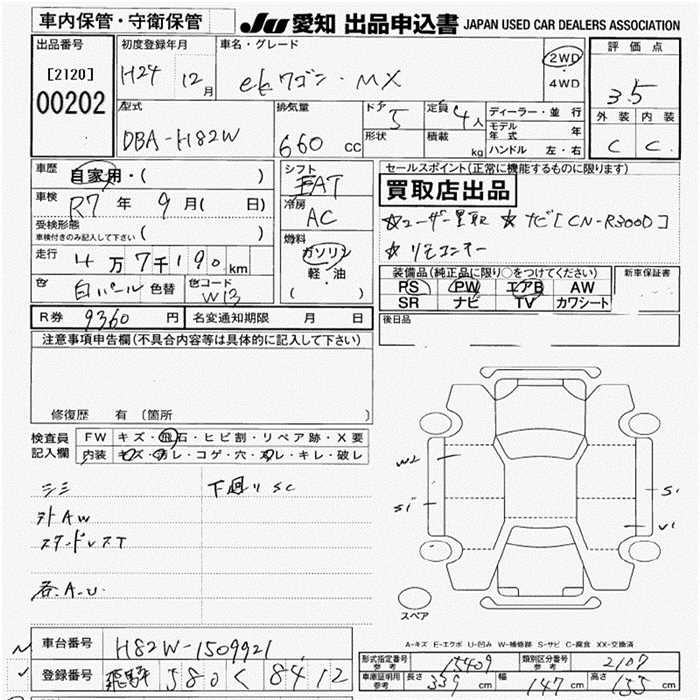 車内保管・守衛保管 JU 愛知 出品申込書 JAPAN USED CAR DEALERS ASSOCIATION
出品番号
[2120]
00202
初度登録年月
H24 12月
車名・グレード
ekワゴン・MX
2WD
・
4WD
評価点
3.5
外装 内装
C C
型式
DBA-H82W
排気量
660 cc
ドア
5
形状
定員
4人
積載 kg
ディーラー・並行
モデル年式 年
ハンドル 左・右
車歴
自家用・( )
車検
R7年 9月( 日)
受検形態
車検付きのみ記入して下さい( )
走行
4万7千190km
色
白パール 色替
色コード
W13
シフト
FAT
冷房
AC
燃料
ガソリン
軽・油
( )
セールスポイント(正常に機能するものに限ります)
買取店出品
☆ユーザー買取 ☆ナビ[CN-R300D]
☆リモコンキー
装備品(純正品に限り○をつけてください)
PS PW エアB AW
SR ナビ TV カワシート
新車保証書
後日品
R券 9360円 名変通知期限 月 日
注意事項申告欄(不具合内容等は具体的に記入して下さい)
修復歴 有〔箇所 〕
検査員
記入欄
FW キズ・飛石・ヒビ割・リペア跡・X要
内装 キズ・汚レ・コゲ・穴・スレ・キレ・破レ
下廻りSC
外AW
各A.U.
W2
S1
S1
U1
スペア
A-キズ E-エクボ U-凹み W-補修跡 S-サビ C-腐食 XX-交換済
車台番号 H82W-1509921
登録番号 飛騨 580 く 8412
形式指定番号
参考
15409
類別区分番号
参考
2107
車庫証明用
参考
長さ 339 cm 幅 147 cm 高さ 155 cm